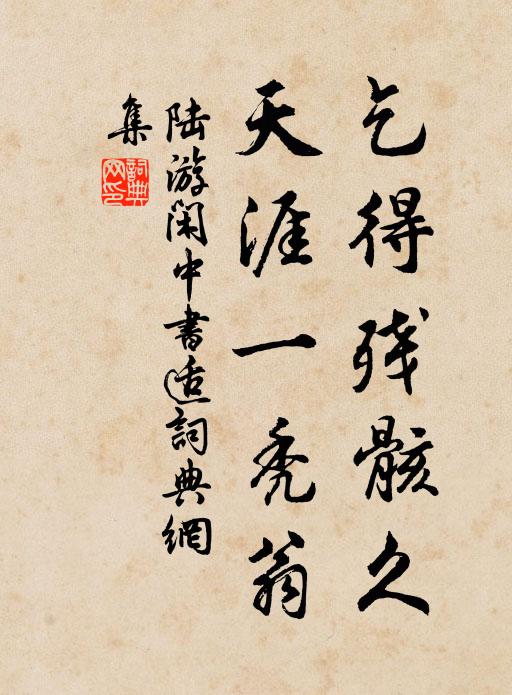 乞得残骸久
天涯一秃翁
陆游闲中书适詞典網
集
詞典
网印